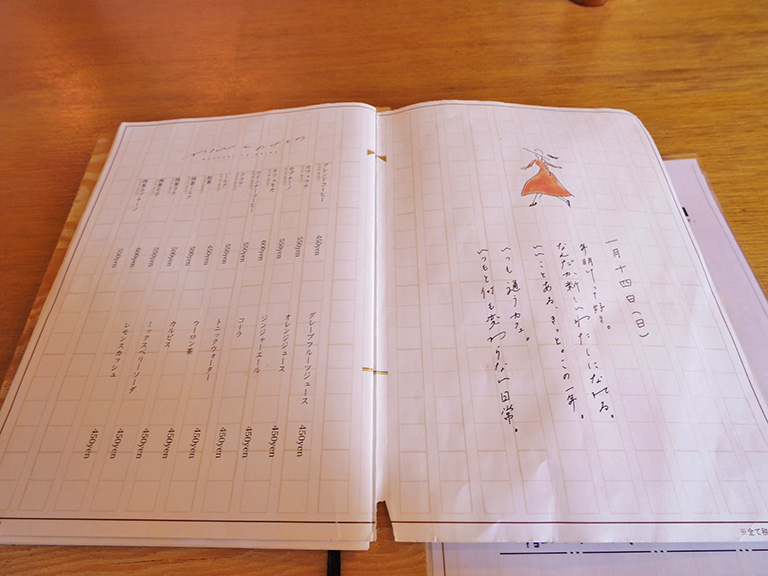 一月十四日(日)
年明けって好き。
なんだか新しいわたしになれる。
いいことある、きっと。この一年。
いつも通うカフェ。
いつもと何も変わらない日常。
※全て税
ブレンドコーヒー
450yen
カフェオレ
500yen
カプチーノ
550yen
カフェモカ
600yen
ウィンナーコーヒー
550yen
ココア
550yen
紅茶
450yen
500yen
500yen
500yen
600yen
550yen
グレープフルーツジュース
450yen
オレンジジュース
450yen
ジンジャーエール
450yen
コーラ
450yen
トニックウォーター
450yen
ウーロン茶
450yen
カルピス
450yen
ミックスベリーソーダ
450yen
レモンスカッシュ
450yen